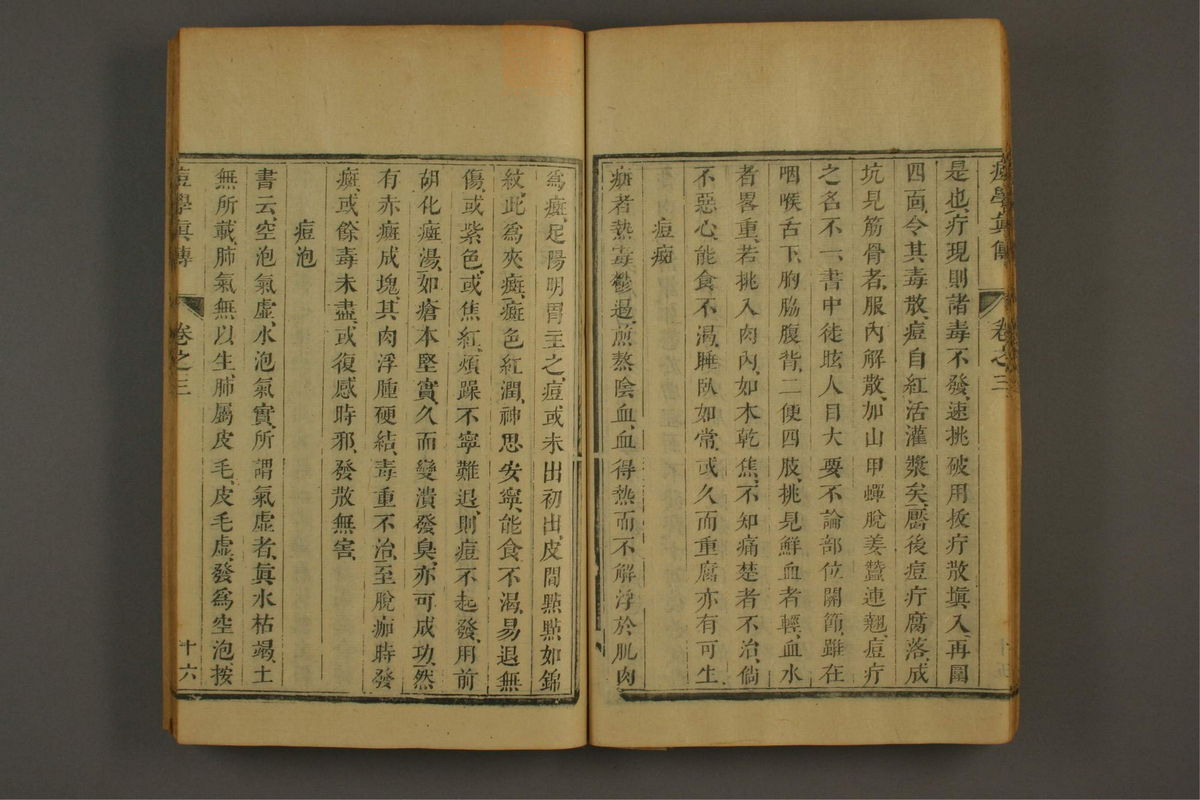 痘學眞傳 卷之三
是也、疔現則諸毒不發、速挑破用拔疔散塡入、再圍
四面、令其毒散、痘自紅活灌漿矣、靨後痘疔腐落、成
坑見筋骨者、服內解散、加山甲蟬脫姜蠶連翹、痘疔
之名不一、書中徒眩人目、大要不論部位關節、雖在
咽喉舌下、胸脇腹背、二便四肢、挑見鮮血者輕、血水
者畧重、若挑入肉內、如木乾焦、不知痛楚者不治、倘
不惡心、能食不渴、睡臥如常、或久而重腐、亦有可生
痘癍
癍者熱毒鬱遏、煎熬陰血、血得熱而不解、浮於肌肉
爲癍、足陽明胃主之、痘或未出初出、皮間點點如錦
紋、此爲夾癍、癍色紅潤、神思安寧、能食不渴、易退無
傷、或紫色、或焦紅、煩躁不寧、難退、則痘不起發、用前
胡化癍湯、如瘡本堅實、久而變潰發臭、亦可成功、然
有赤癍成塊、其肉浮腫硬結、毒重不治、至脫痂時發
癍、或餘毒未盡、或復感時邪、發散無害、
痘泡
書云、空泡氣虛、水泡氣實、所謂氣虛者、眞水枯竭、土
無所載、肺氣無以生、肺屬皮毛、皮毛虛、發爲空泡、按
痘學眞傳 卷之三 十六